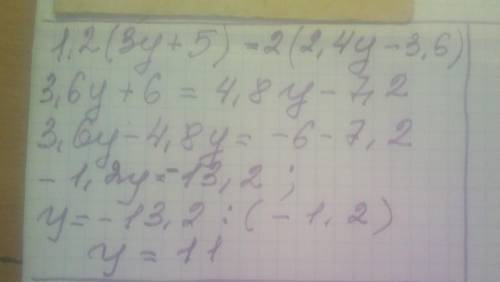 1,2(3y+5)=2(2,4y-3,6)
3,6y+6=4,8y-7,2
3,6y-4,8y=-6-7,2
-1,2y=-13,2;
y=-13,2:(-1,2)
y=11